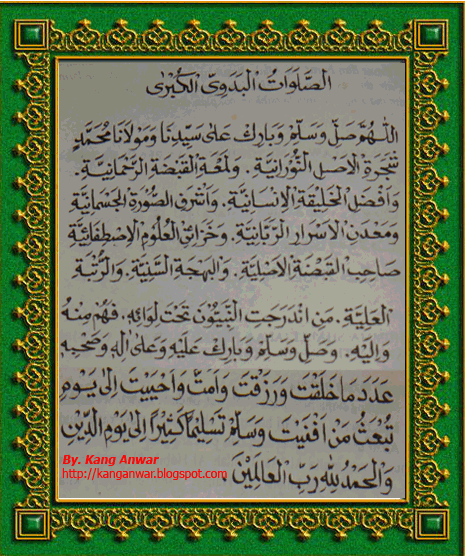 الصَّلَوَاتُ الْبَدَوِيّ الْكُبْرٰى
اَللّٰهُمَّ صَلِّ وَسَلِّمْ وَبَارِكْ عَلٰى سَيِّدِنَا وَمَوْلَانَا مُحَمَّدٍ
شَجَرَةِ الْاَصْلِ النُّوْرَانِيَّةِ . وَلَمْعَةِ الْقَبْضَةِ الرَّحْمَانِيَّةِ .
وَاَفْضَلِ الْخَلِيْقَةِ الْاِنْسَانِيَّةِ . وَاَشْرَقِ الصُّوْرَةِ الْجِسْمَانِيَّةِ
وَمَعْدِنِ الْاَسْرَارِ الرَّبَّانِيَّةِ . وَخَزَائِنِ الْعُلُوْمِ الْاِصْطِفَائِيَّةِ
صَاحِبِ الْقَبْضَةِ الْاَصْلِيَّةِ . وَالْبَهْجَةِ السَّنِيَّةِ . وَالرُّتْبَةِ
الْعَلِيَّةِ . مَنِ انْدَرَجَتِ النَّبِيُّوْنَ تَحْتَ لِوَائِهِ . فَهُمْ مِنْهُ
وَاِلَيْهِ . وَصَلِّ وَسَلِّمْ وَبَارِكْ عَلَيْهِ وَعَلٰى اٰلِهِ وَصَحْبِهِ
عَدَدَ مَا خَلَقْتَ وَرَزَقْتَ وَاَمَتَّ وَاَحْيَيْتَ اِلٰى يَوْمِ
تُبْعَثُ مَنْ اَفْنَيْتَ وَسَلِّمْ تَسْلِيْمًا كَثِيْرًا اِلٰى يَوْمِ الدِّيْنِ
وَالْحَمْدُ لِلّٰهِ رَبِّ الْعَالَمِيْنَ
By. Kang Anwar
http://kanganwar.blogspot.com